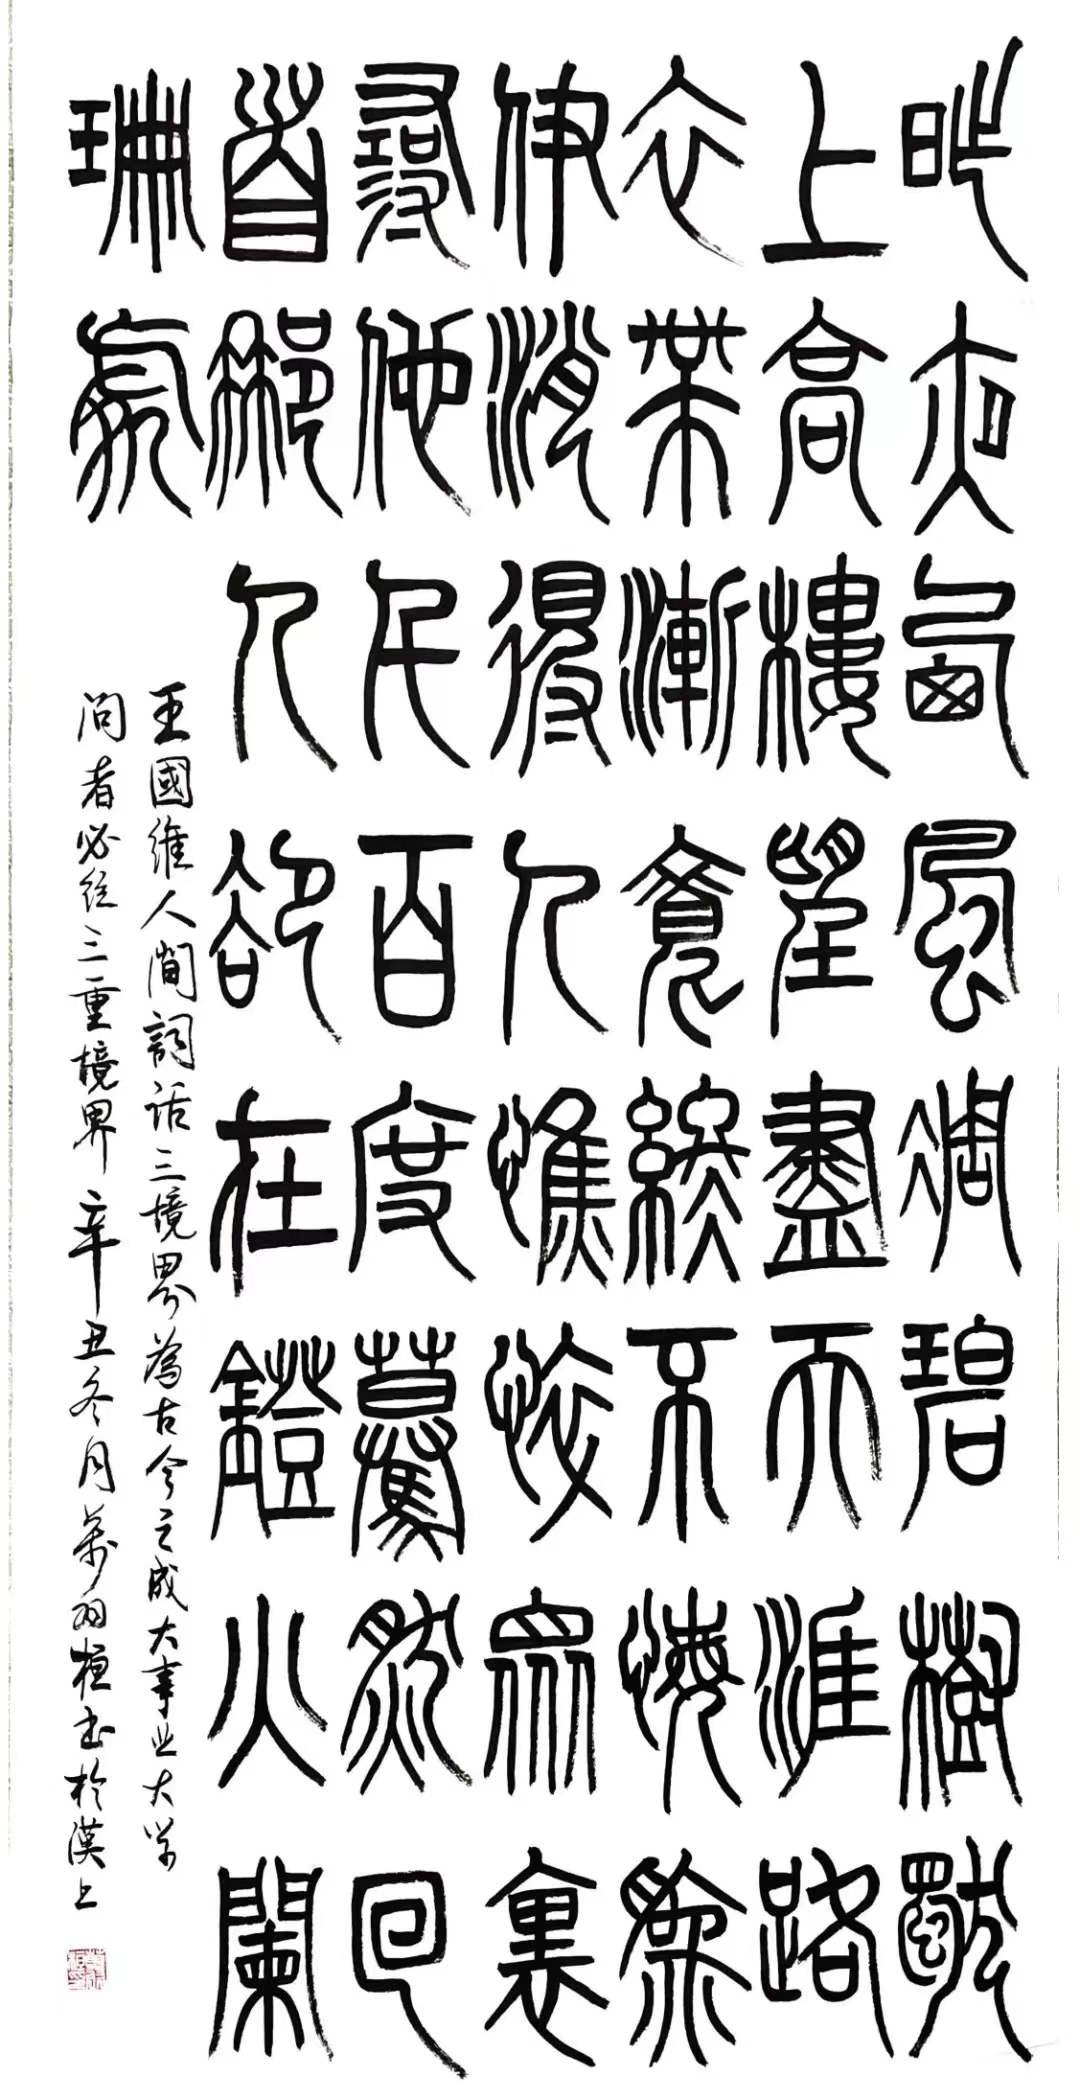 昨夜西風凋碧樹獨
上高樓望盡天涯路
衣帶漸寬終不悔為
伊消得人憔悴眾裏
尋他千百度驀然回
首那人卻在鐙火闌
珊處
王國維人間詞話三境界為古今之成大事业大学
問者必经三重境界辛丑冬月萬羽桓书於漢上